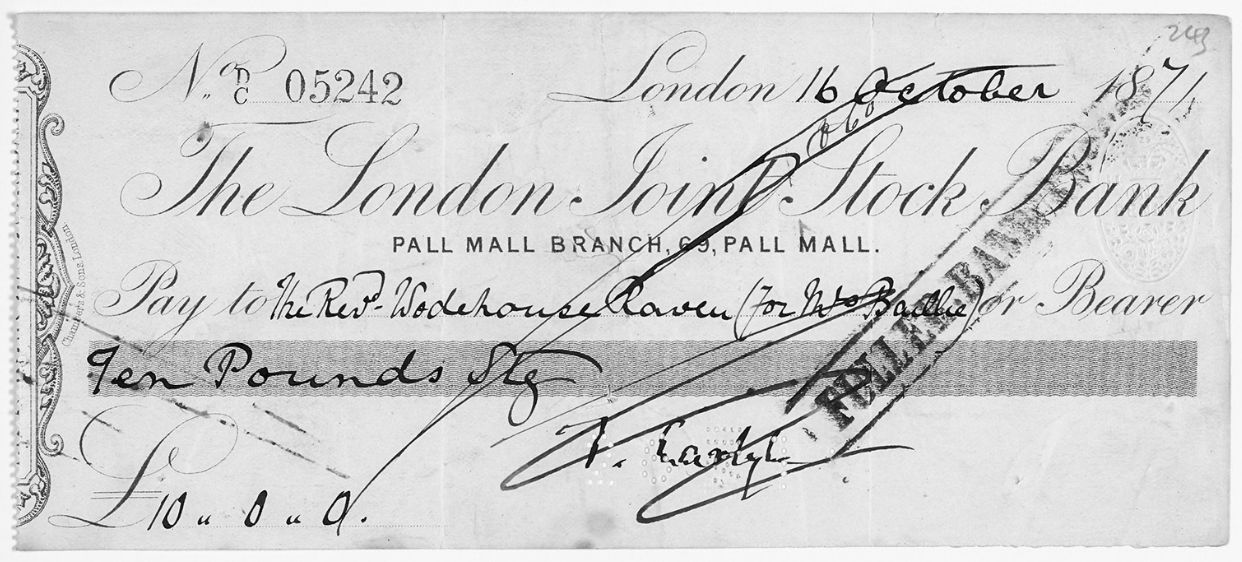 243
No. D/C 05242 London 16 October 1871
The London Joint Stock Bank
PALL MALL BRANCH, 69, PALL MALL.
Pay to the Revd. Wodehouse Raven (for Mrs Baillie) or Bearer
Ten Pounds Stg
£10 „ 0 „ 0.
FULLER. BAN
Chambers & Sons. London